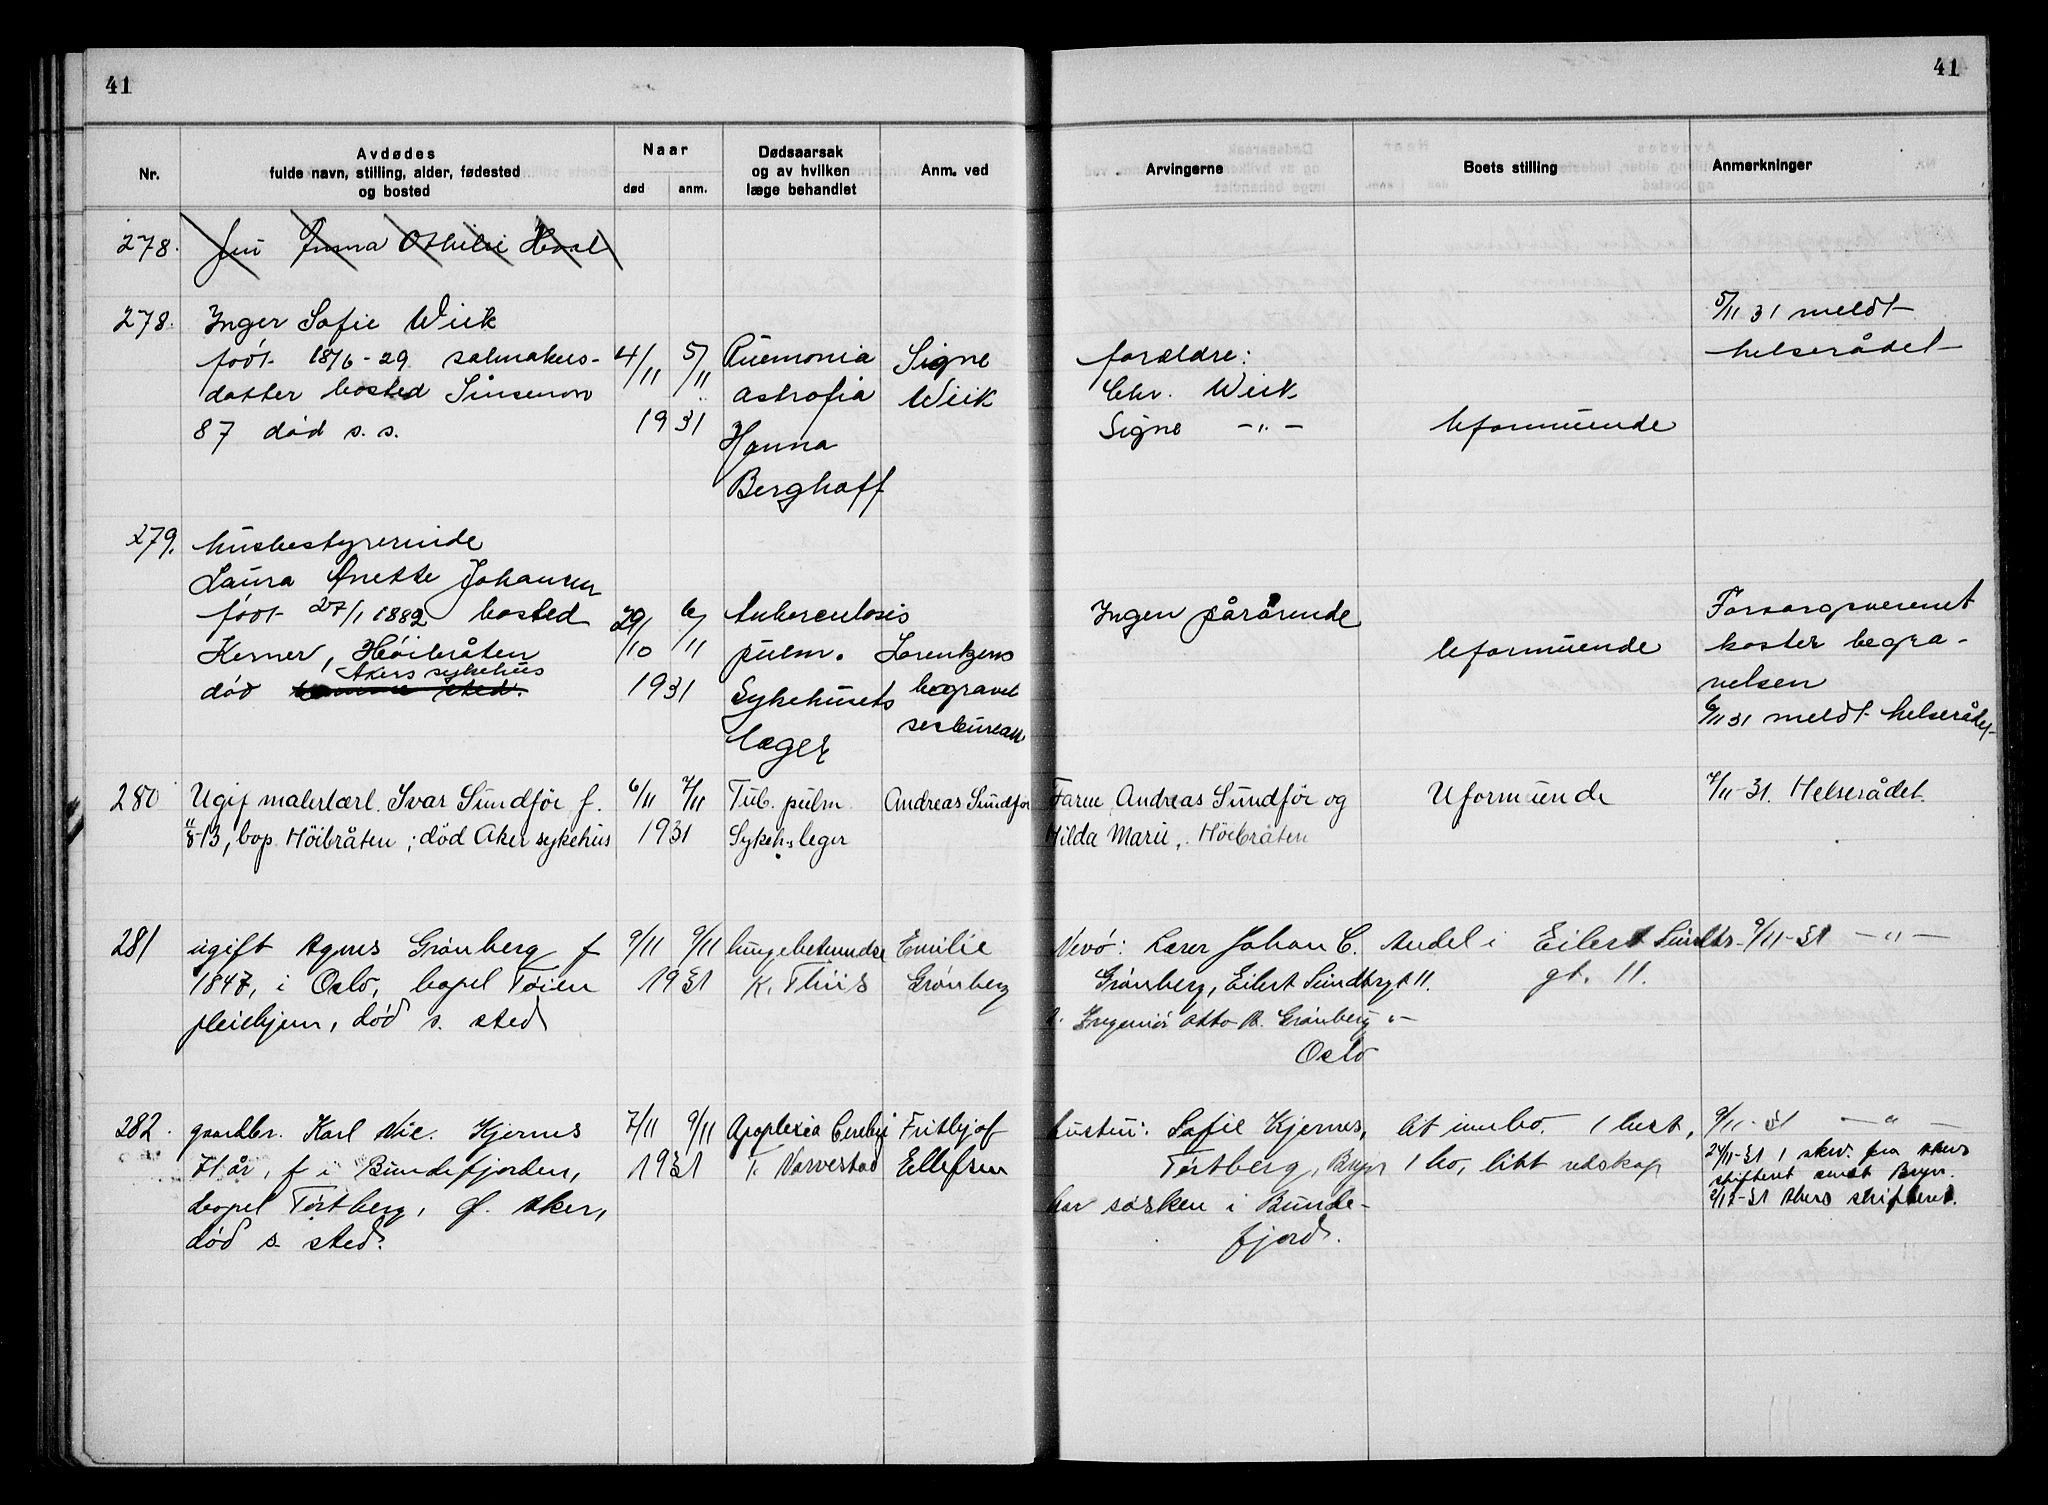 41
41
Nr.
Avdødes
fulde navn, stilling, alder, fødested
og bosted
Naar
død
anm.
Dødsaarsak
og av hvilken
læge behandlet
Anm. ved
Arvingerne
Boets stilling
Anmerkninger
278.
Othilie
278.
Inger Sofie Wiik
født 18/6-29 salmakers-
datter bosted Sinsenvn
87 død s. s.
4/11 5/11
1931
Pnemonia
astrofia
Hanna
Berghoff
Signe
Wiik
forældre:
Chr. Wiik
Signe -"-
Uformuende
5/11 31 meldt
helserådet
279.
husbestyrerinde
Laura Anette Johansen
født 27/1 1882 bosted
Kerner, Høibråten
Akers sykehus
død samme sted.
29/10 6/11
1931
Tuberculosis
pulm.
Sykehusets
læger
Lorentzens
begravel
sesbureau
Ingen pårørende
Uformuende
Forsorgsvesenet
koster begra-
velsen
6/11 31 meldt helserådet
280
Ugif malerlærl. Ivar Sundför f.
11/8-13, bop Höibråten; död Aker sykehus
6/11 7/11
1931
Tub. pulm.
Sykeh.s leger
Andreas Sundför
Farm Andreas Sundför og
Hilda Marie, Höibråten
Uformuende
7/11-31. Helserådet.
281
ugift Agnes Grönberg f
1847, i Oslo, bopel Töien
pleiehjem, död s. sted
9/11 9/11
1931
lungebetændse
K. Thiis
Emilie
Grønberg
Nevö: Lærer Johan C.
Grönberg, Eilert Sundtsgt 11.
Ingeniör Otto R. Grönberg "-
Oslo
Andel i Eilert Sundts-
gt. 11.
9/11-31 -"-
282.
gaardbr. Karl Nic. Kjernes
71 år, f i Bundefjorden,
bopel Tørtberg, Ø. Aker,
död s. sted.
7/11 9/11
1931
Apoplexia Cerebri
T. Varvestad
Fritjof
Ellefsen
hustru: Sofie Kjernes,
Törtberg, Bryn
har søsken i Bunde-
fjord.
Lit innbo. 1 hest,
1 ko, litt redskap
9/11-31 -"-
24/11-31 1 skr. fra Akers
skifterett amt Bryn.
2/12-31 Akers skifterett.